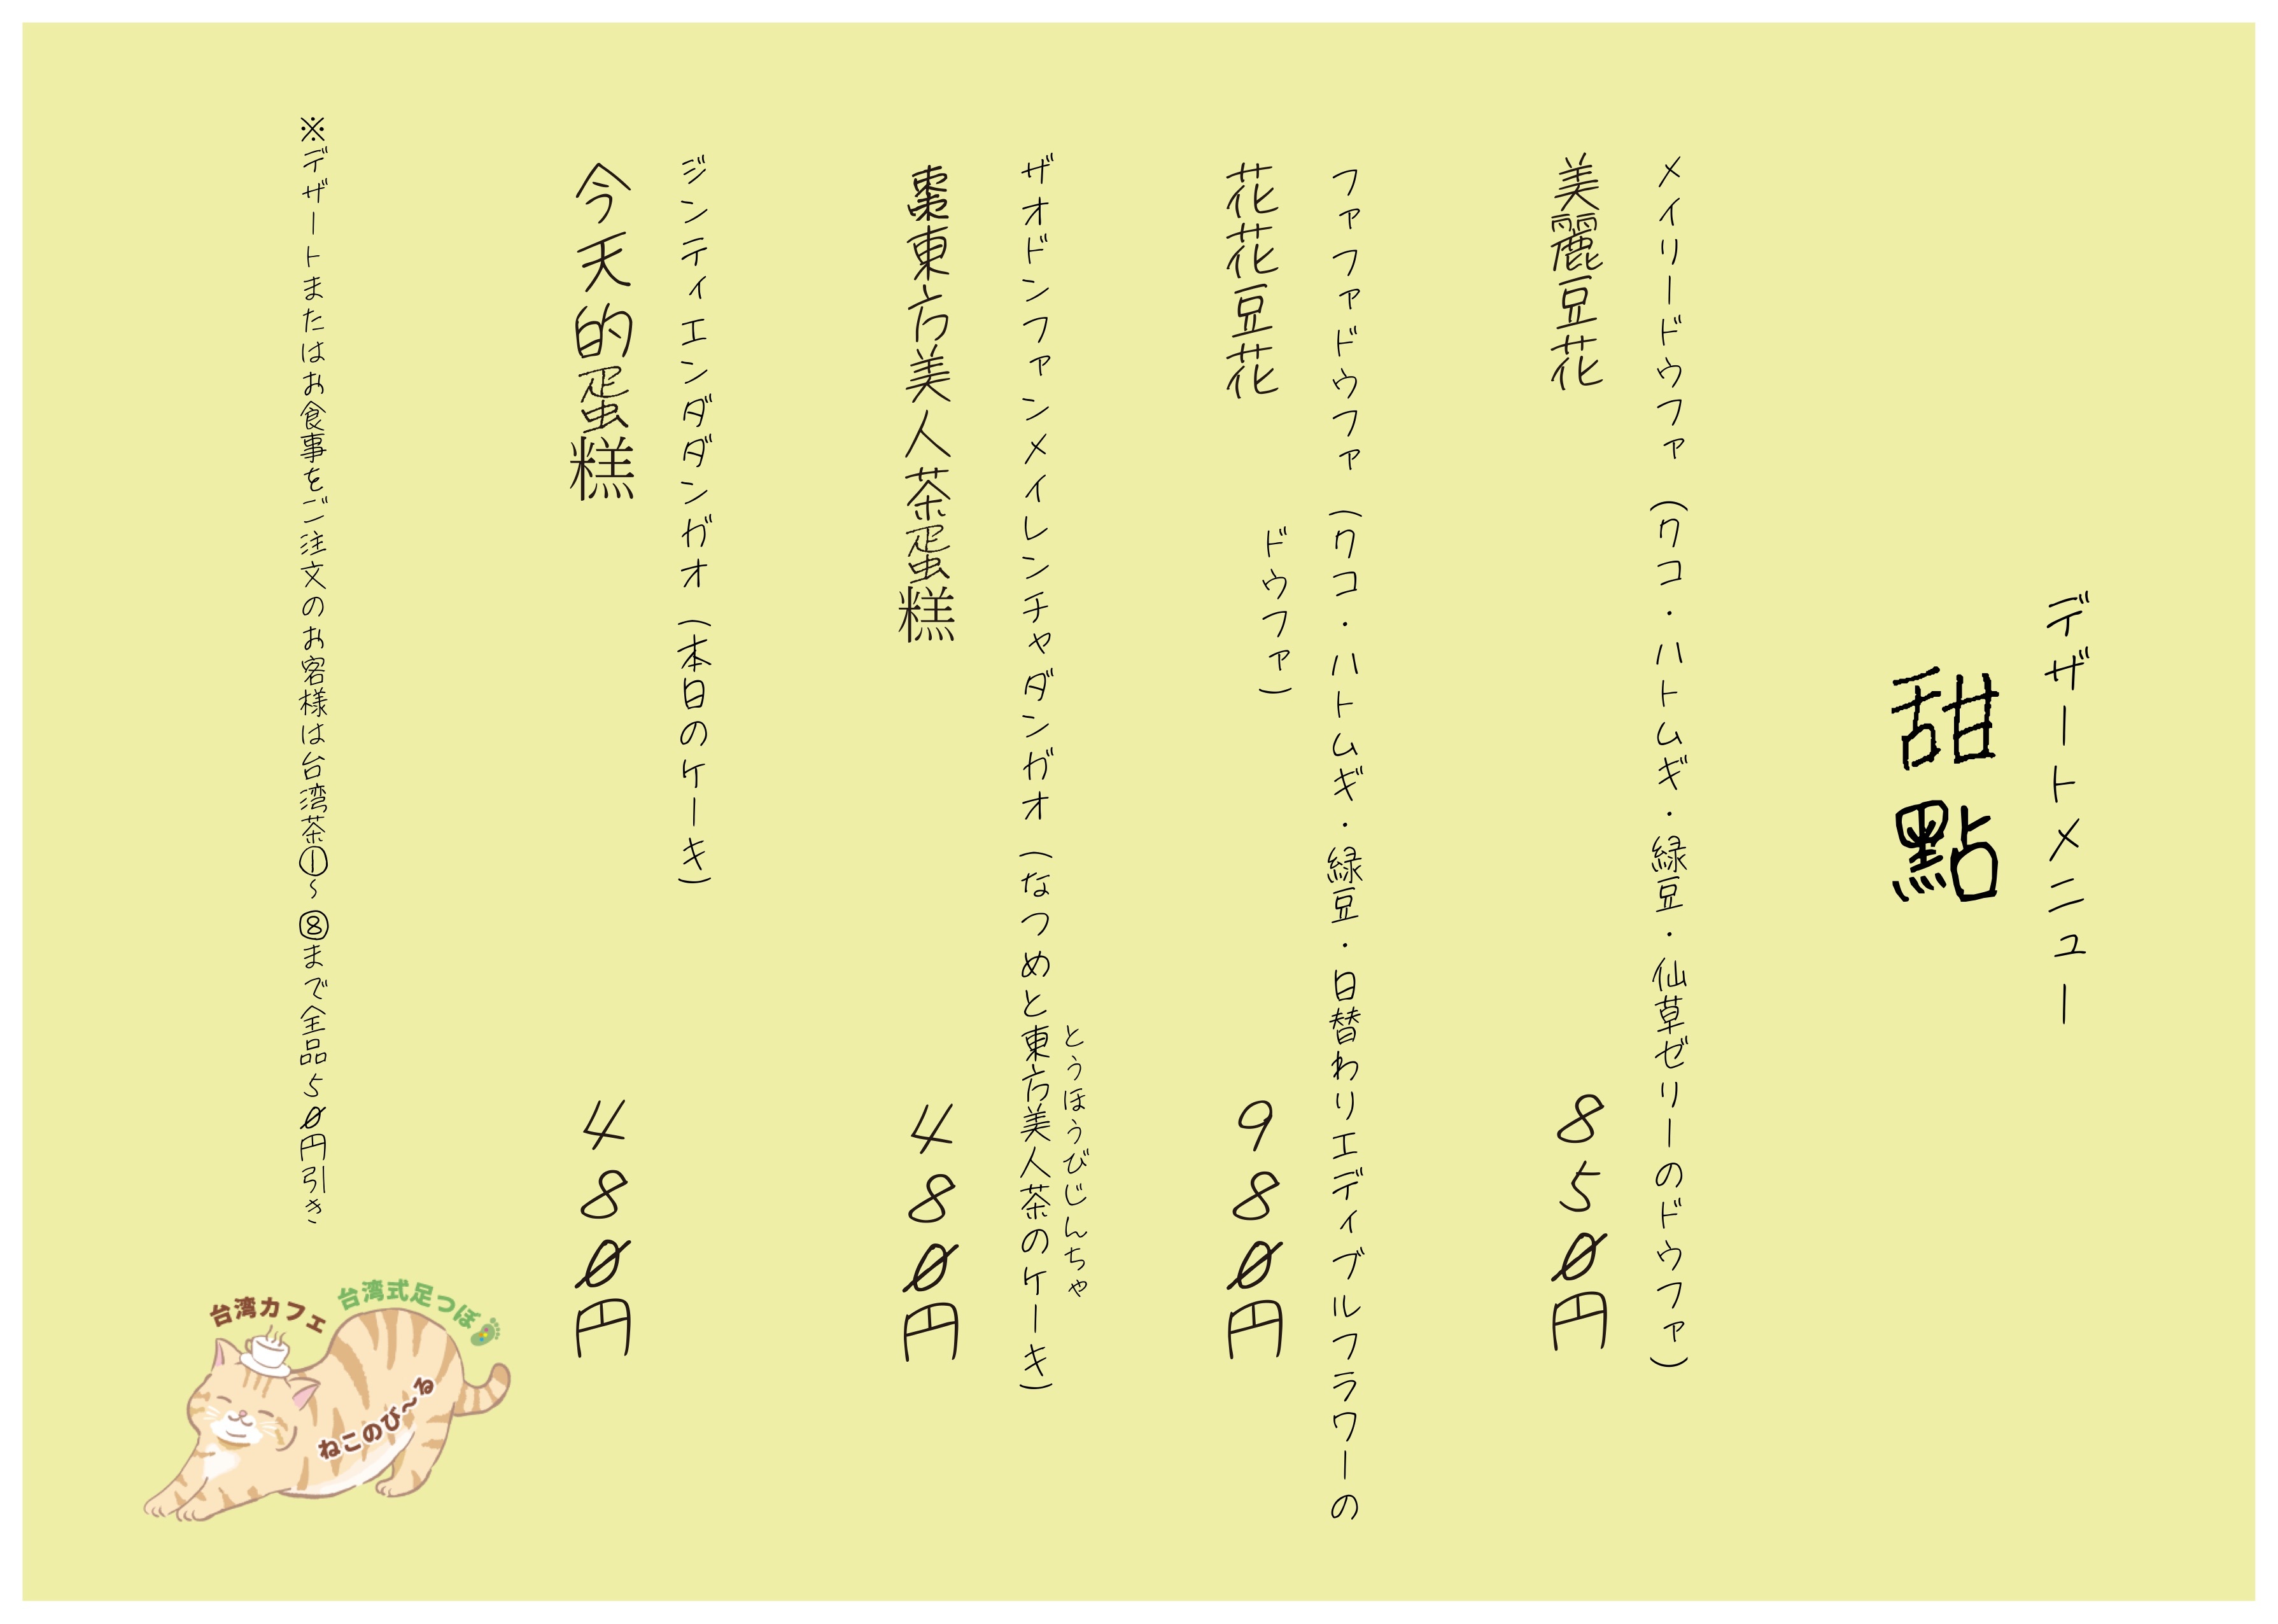 デザートメニュー
甜點
メイリードウファ（クコ・ハトムギ・緑豆・仙草ゼリーのドウファ）
美麗豆花 850円
ファファドウファ（クコ・ハトムギ・緑豆・日替わりエディブルフラワーの
ドウファ）
花花豆花 980円
とうほうびじんちゃ
ザオドンファンメイレンチャダンガオ（なつめと東方美人茶のケーキ）
棗東方美人茶蛋糕 480円
ジンティエンダダンガオ（本日のケーキ）
今天的蛋糕 480円
※デザートまたはお食事をご注文のお客様は台湾茶①～⑧まで全品50円引き、
台湾カフェ
台湾式足つぼ
ねこのび～る